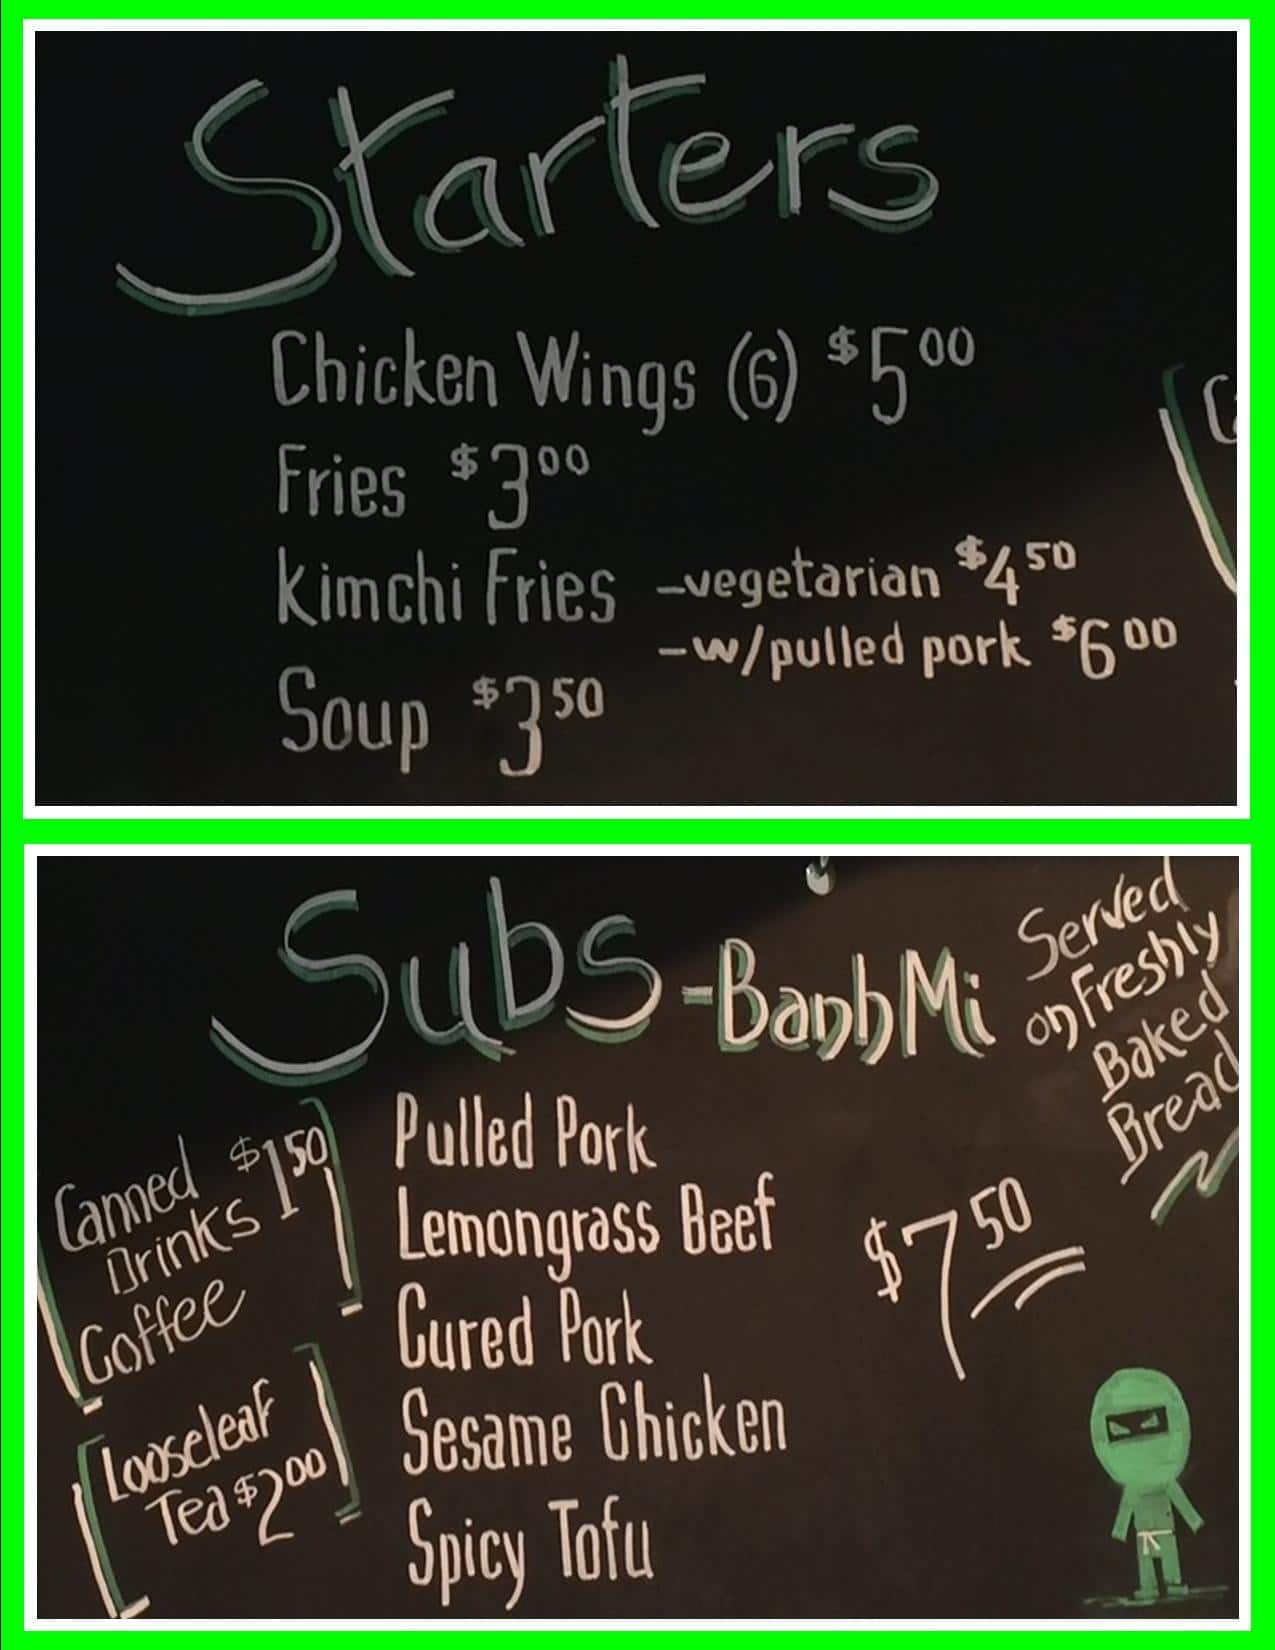 Starters
Chicken Wings (6) $5 00
Fries $3 00
Kimchi Fries -vegetarian $4 50
-w/pulled pork $6 00
Soup $3 50
Subs -Banh Mi
Served
on Freshly
Baked
Bread
Canned $1 50
Drinks
Coffee
Looseleaf
Tea $2 00
Pulled Pork
Lemongrass Beef
Cured Pork
Sesame Chicken
Spicy Tofu
$7 50